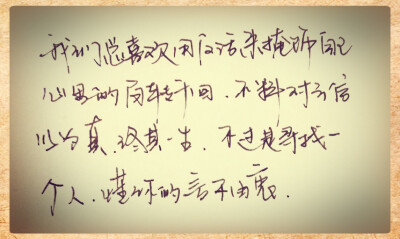 我们总喜欢用反话来掩饰自己
心里的百转千回.不料对方信
以为真.终其一生.不过是寻找一
个人.懂你的言不由衷.